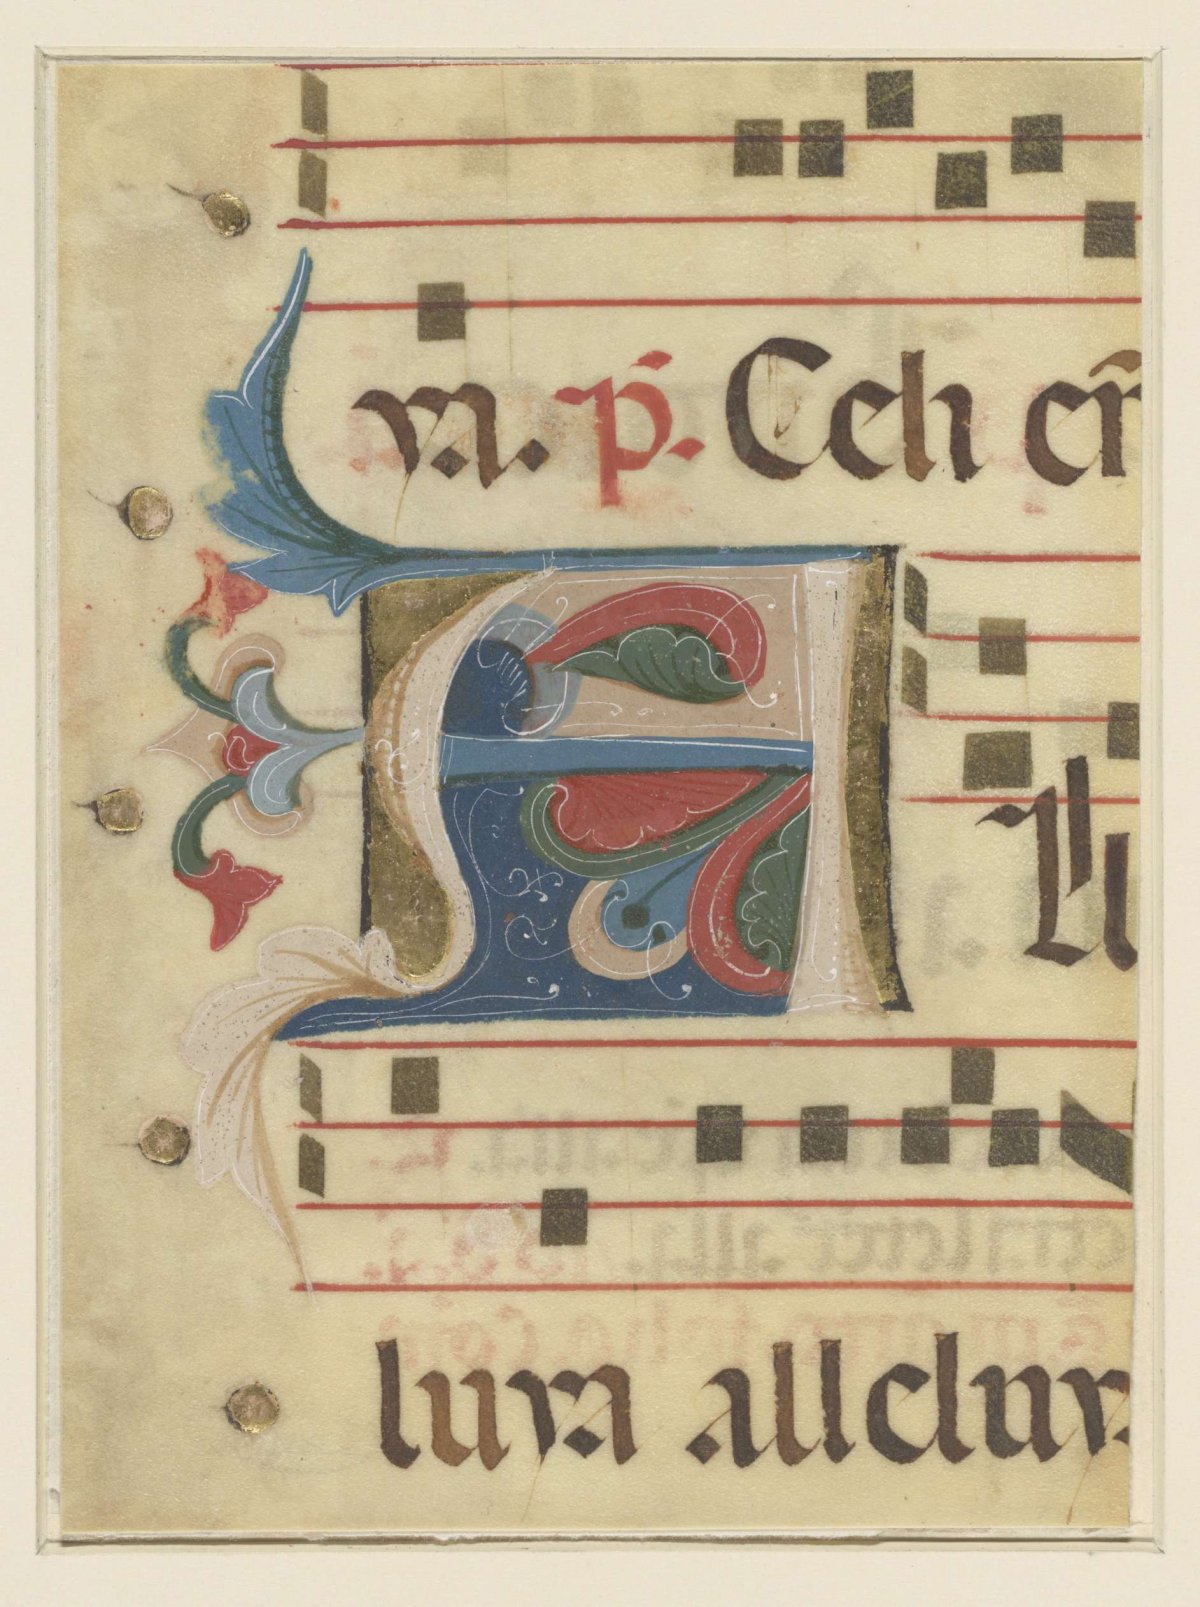 ya. p̄. Celi en̄
A ll
luya alleluy